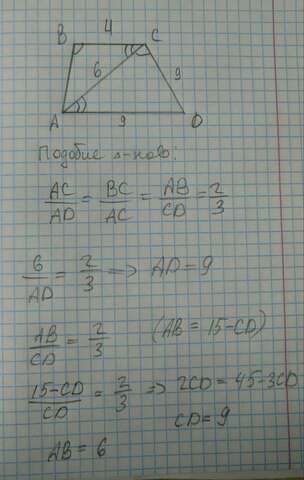 B 4 C
6 9
A 9 D
Подобие Δ-ков:
AC/AD = BC/AC = AB/CD = 2/3
6/AD = 2/3 => AD = 9
AB/CD = 2/3 (AB = 15-CD)
15-CD/CD = 2/3 => 2CD = 45-3CD
CD = 9
AB = 6